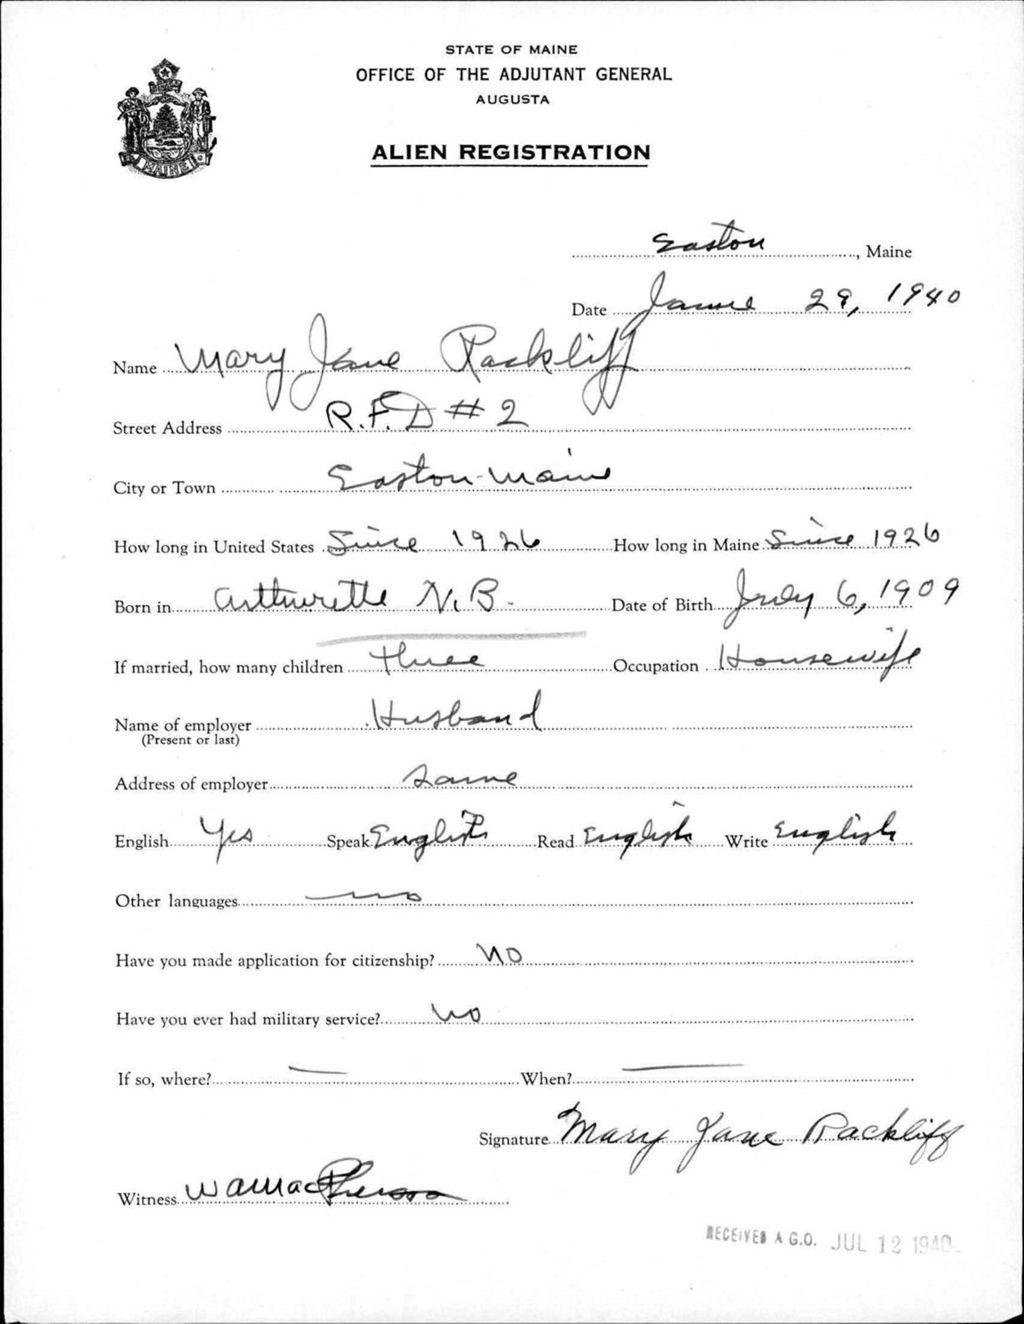 STATE OF MAINE
OFFICE OF THE ADJUTANT GENERAL
AUGUSTA
ALIEN REGISTRATION
MAINE
Easton, Maine
Date June 29, 1940
Name Mary Jane Rackliff
Street Address R.F.D #2
City or Town Easton-Maine
How long in United States Since 1926 How long in Maine Since 1926
Born in Arthurette N.B. Date of Birth July 6, 1909
If married, how many children three Occupation Housewife
Name of employer Husband
(Present or last)
Address of employer Same
English Yes Speak English Read English Write English
Other languages no
Have you made application for citizenship? No
Have you ever had military service? No
If so, where? — When? —
Signature Mary Jane Rackliff
Witness W A MacPherson
RECEIVED A.G.O. JUL 12 1940